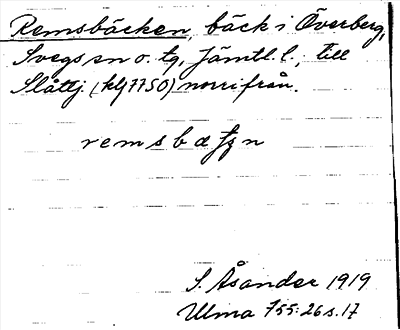 Remsbäcken, bäck i Överberg,
Svegs sn o. tg, Jämtl. l., till
Slåttj. (kbl 7750) norrifrån.
remsbæʈʂn
S. Åsander 1919
Ulma 755:26 s. 17